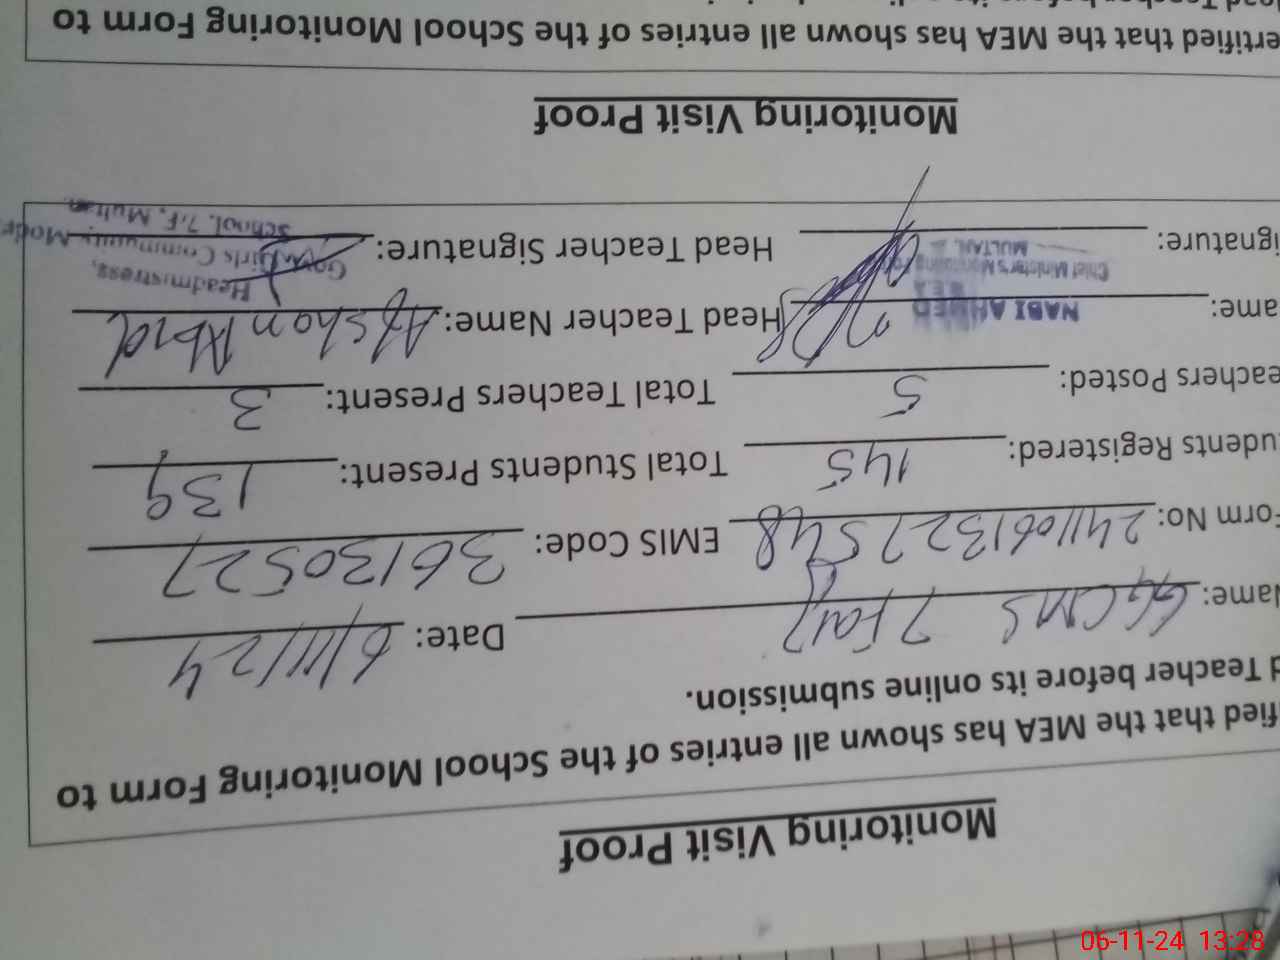 Monitoring Visit Proof
fied that the MEA has shown all entries of the School Monitoring Form to
d Teacher before its online submission.
Name: GGCMS 7 Faiz Date: 6/11/24
Form No: 2411061327548 EMIS Code: 36130527
udents Registered: 145 Total Students Present: 139
eachers Posted: 5 Total Teachers Present: 3
ame: NABI AHMED Head Teacher Name: Afshan Abid
MEA
Chief Minister's Monitoring Force
MULTAN.
Headmistress,
Govt. Girls Community Model
School. 7.F, Multan.
ignature: Head Teacher Signature:
Monitoring Visit Proof
ertified that the MEA has shown all entries of the School Monitoring Form to
06-11-24 13:28